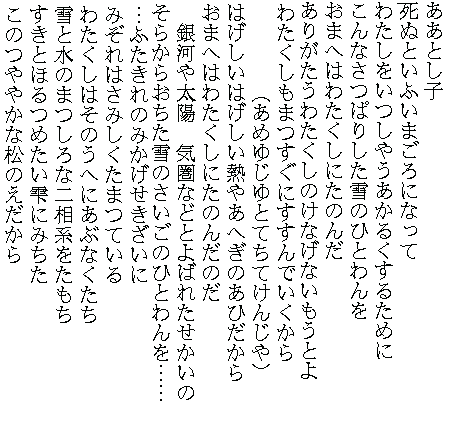 ああとし子
死ぬといふいまごろになって
わたしをいつしやうあかるくするために
こんなさつぱりした雪のひとわんを
おまへはわたくしにたのんだ
ありがたうわたくしのけなげないもうとよ
わたくしもまつすぐにすすんでいくから
（あめゆじゆとてちてけんじや）
はげしいはげしい熱やあへぎのあひだから
おまへはわたくしにたのんだのだ
銀河や太陽　気圏などとよばれたせかいの
そらからおちた雪のさいごのひとわんを……
…ふたきれのみかげせきざいに
みぞれはさみしくたまつている
わたくしはそのうへにあぶなくたち
雪と水のまつしろな二相系をたもち
すきとほるつめたい雫にみちた
このつややかな松のえだから